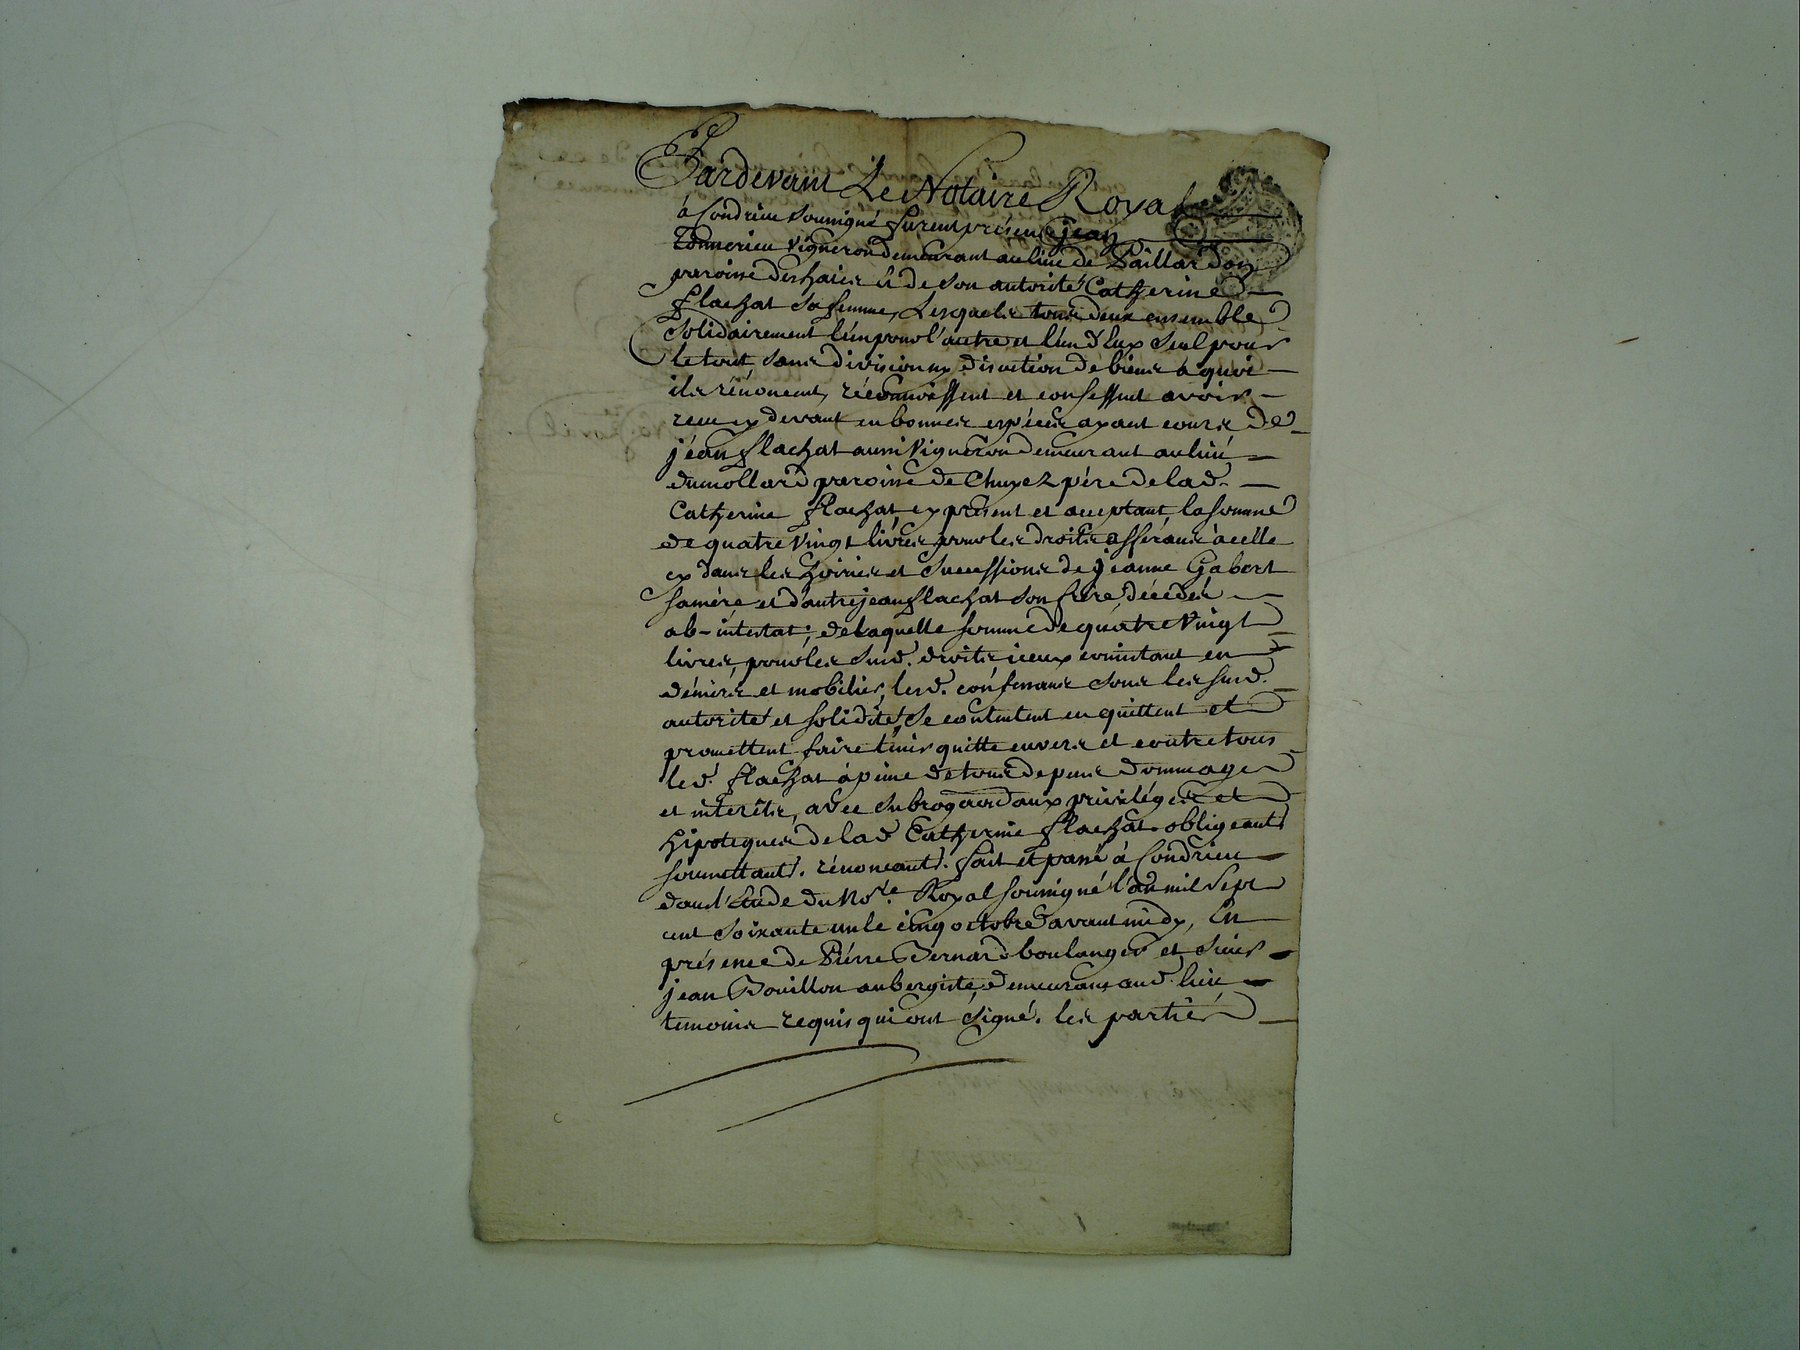 Pardevant Le Notaire Royal
à Condrieu soussigné furent présens Jean
vigneron demeurant au lieu de Paillardon
paroisse des haies & de son autorité Catherine
flachat sa femme, Lesquels tous deux ensemble
solidairement l'un pour l'autre et l'un d'Eux seul pour
le tout, sans division ny discution de biens à quoi
ils rénoncent, réconnoissent et confessent avoir
reçu cy devant en bonnes espéces ayant cours de
jéan flachat aussi Vigneron demeurant au lieu
du mollard paroisse de Chuyez pére de lad.
Catherine flachat cy présent et acceptant, la somme
de quatre vingt livres pour les droits afférans à celle
cy dans les hoiries et successions de jéanne Gabert
sa mére et d'autre jean flachat son frére décédés
ab-intestat; de laquelle somme de quatre Vingt
livres, pour les susd. droits iceux consistant en
déniers et mobilier, lesd. confessans sous les susd.
autorité et solidité, se contentent en quittent et
promettent faire ténir quitte envers et contre tous
led. flachat à peine de tous depens dommages
et interêts, avec subrogaõn aux priviléges et
hipoteques de lad Catherine flachat. obligeants
soumettants. rénonceants. fait et passé à Condrieu
dans l'étude du No.re Royal soussigné l'an mil sept
cent soixante un le cinq octobre avant midy, En
présence de Piérre Bernard boulanger et sieur
jean Bouillon aubergiste, demeurans aud. lieu
temoins requis qui ont signé. les parties